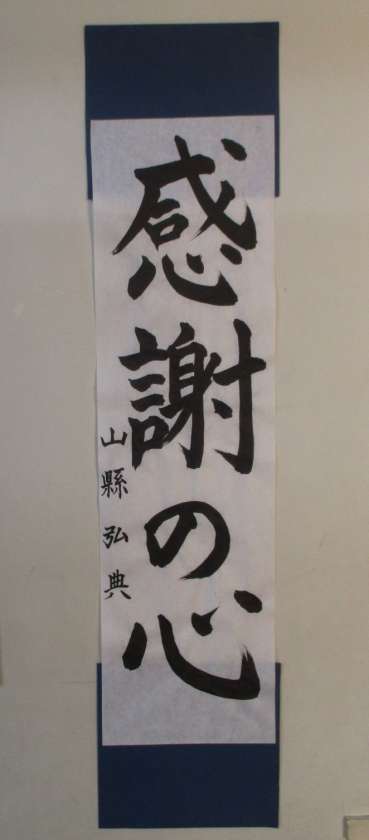 感謝の心
山縣弘典